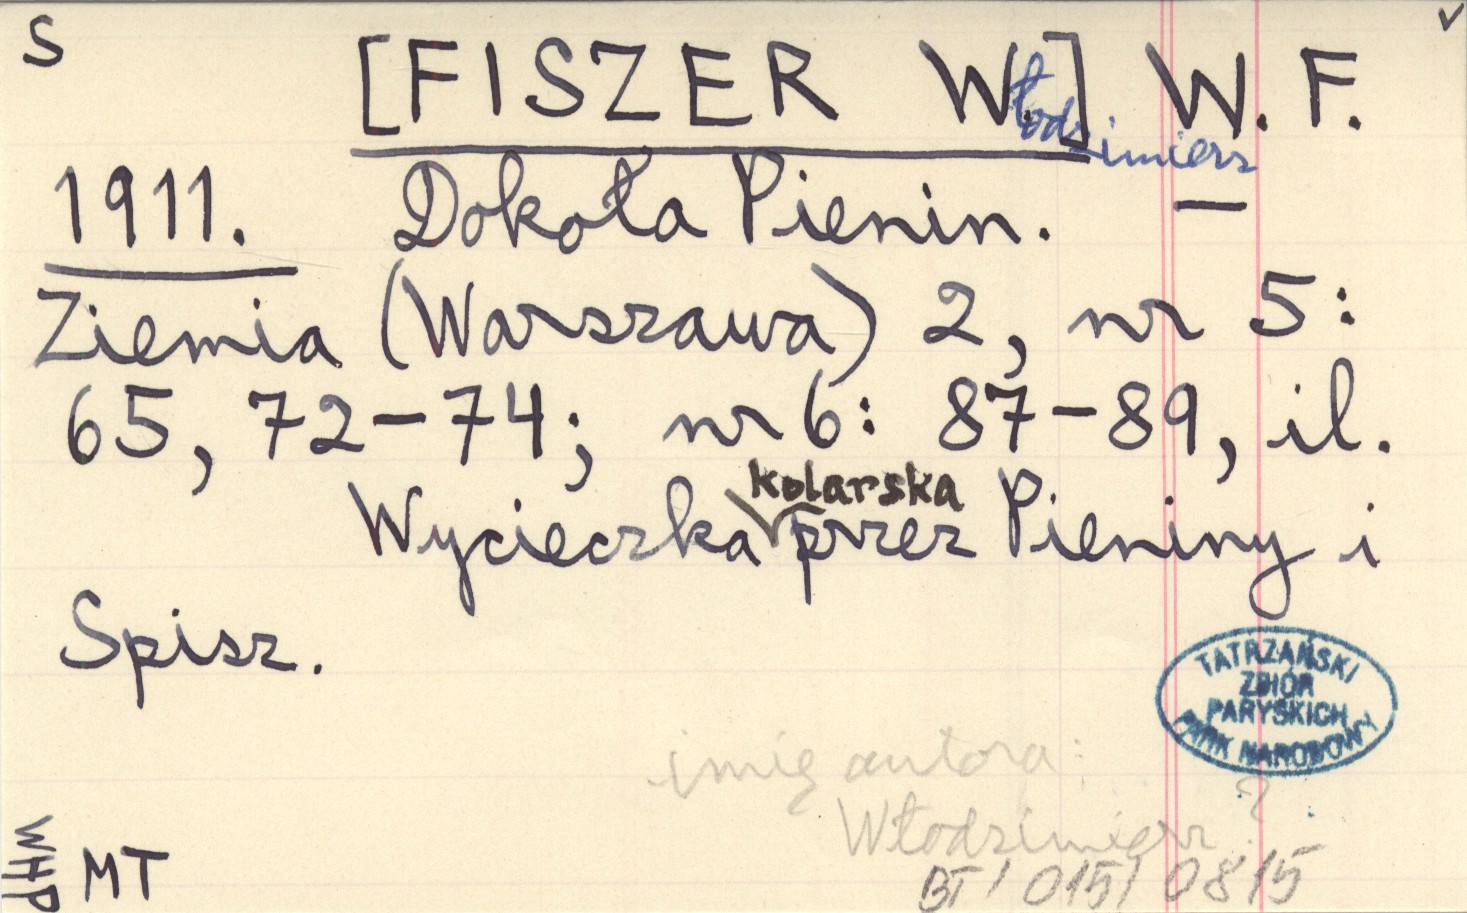 S
[FISZER Włodzimierz] W. F.
1911. Dokoła Pienin. —
Ziemia (Warszawa) 2, nr 5:
65, 72-74; nr 6: 87-89, il.
kolarska
Wycieczka przez Pieniny i
Spisz.
TATRZAŃSKI
ZBIÓR
PARYSKICH
PARK NARODOWY
imię autora:
Włodzimierz ?
WHP
MT
BT/015/0815